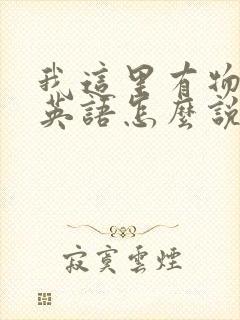 我這里有物
英語怎麼說
寂寞雲煙